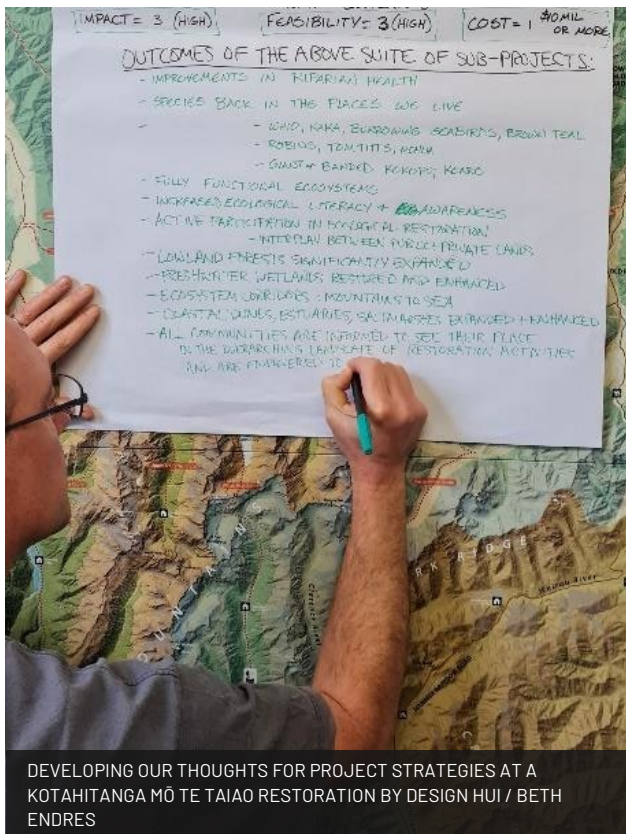 IMPACT = 3 (HIGH) FEASIBILITY = 3 (HIGH) COST = 1 $10 MIL
OR MORE
OUTCOMES OF THE ABOVE SUITE OF SUB-PROJECTS:
- IMPROVEMENTS IN RIPARIAN HEALTH
- SPECIES BACK IN THE PLACES WE LIVE
- - WHIO, KAKA, BURROWING SEABIRDS, BROWN TEAL
- ROBINS, TOMTITS,
- GIANT + BANDED KOKOPU, KOARO
- FULLY FUNCTIONAL ECOSYSTEMS
- INCREASED ECOLOGICAL LITERACY + AWARENESS
- ACTIVE PARTICIPATION IN ECOLOGICAL RESTORATION
- INTERPLAY BETWEEN PUBLIC + PRIVATE LANDS
- LOWLAND FORESTS SIGNIFICANTLY EXPANDED
- FRESHWATER WETLANDS RESTORED AND ENHANCED
- ECOSYSTEM CORRIDORS : MOUNTAINS TO SEA
- COASTAL DUNES, ESTUARIES, SALTMARSHES EXPANDED + ENHANCED
- ALL COMMUNITIES ARE INFORMED TO SEE THEIR PLACE
IN THE OVERARCHING LANDSCAPE OF RESTORATION ACTIVITIES
AND ARE EMPOWERED TO
RK RIDGE
River
DEVELOPING OUR THOUGHTS FOR PROJECT STRATEGIES AT A
KOTAHITANGA MŌ TE TAIAO RESTORATION BY DESIGN HUI / BETH
ENDRES